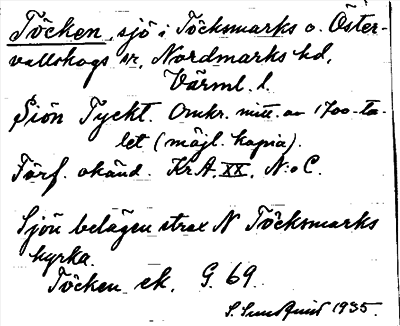 Töcken, sjö i Töcksmarks o. Öster-
vallskogs sr, Nordmarks hd,
Värml. l.
Siön Tyckt. Omkr. mitt. av 1700-ta-
let (möjl. kopia).
Förf. okänd. KrA. XX. N:o C.
Sjön belägen strax N Töcksmarks
kyrka.
Töcken ek. G. 69
S. Sundquist 1935.